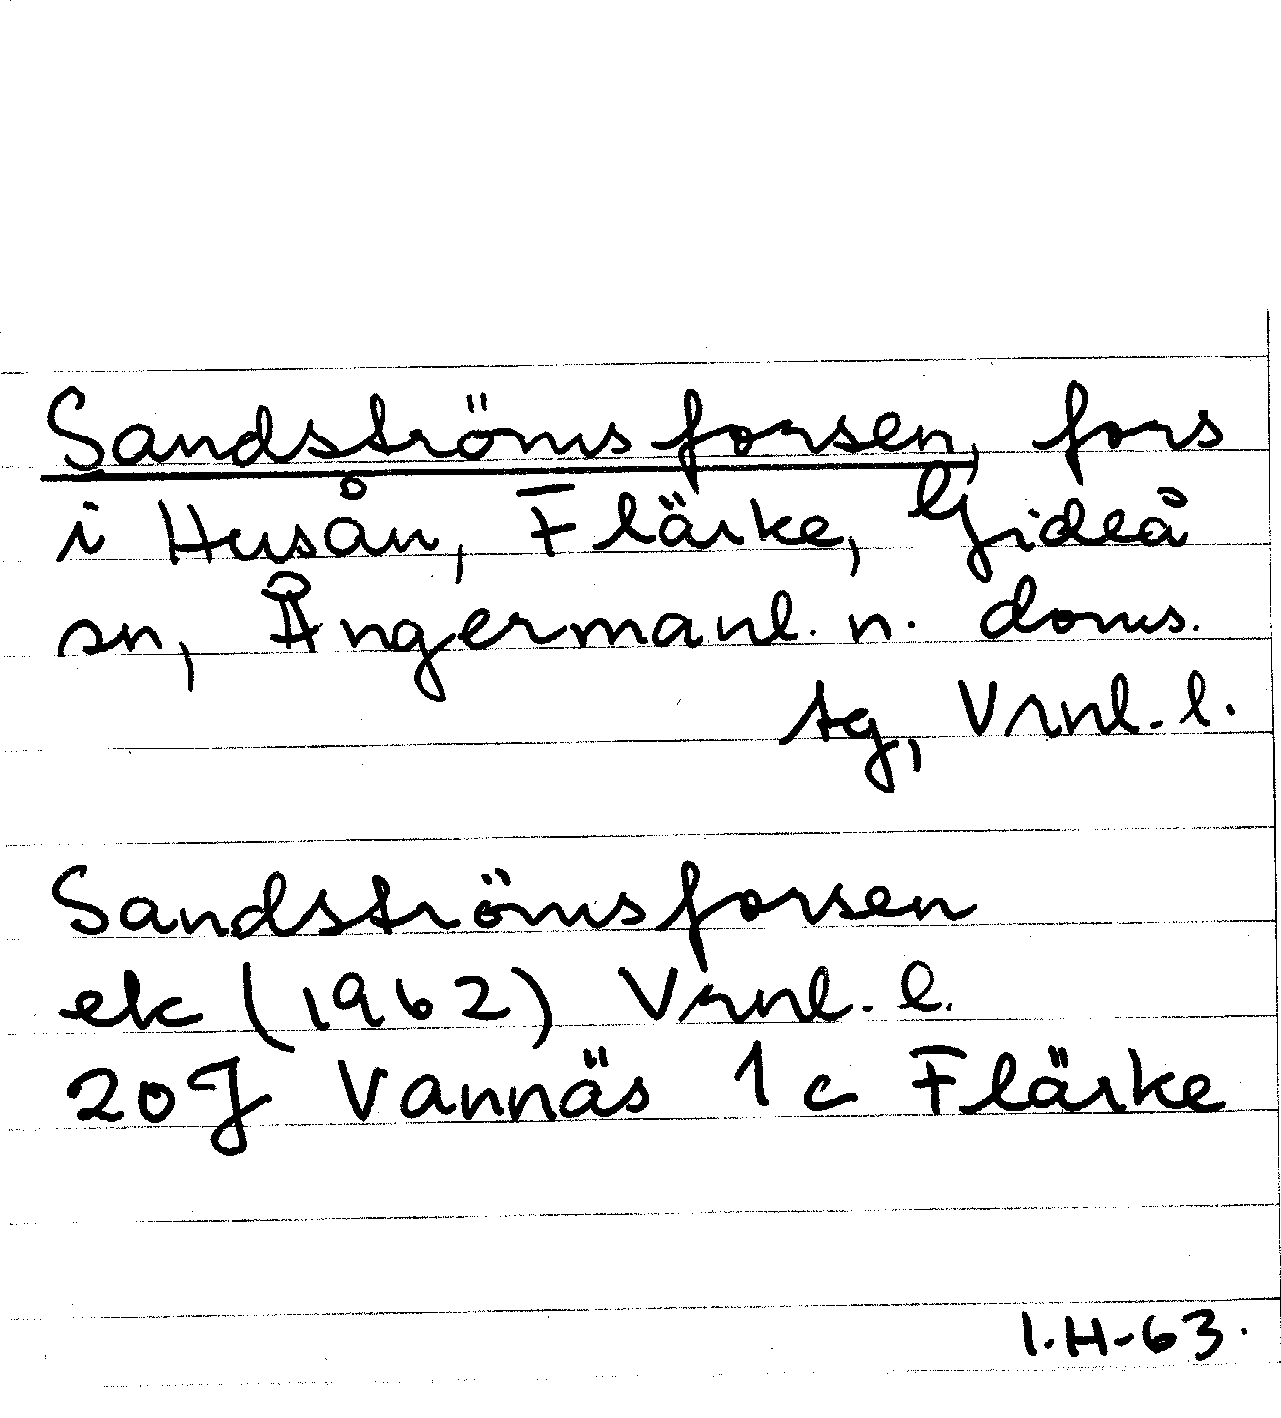 Sandströmsforsen, fors
i Husån, Flärke, Gideå
sn, Ångermanl. n. doms.
tg, Vrnl. l.
Sandströmsforsen
ek (1962) Vrnl. l.
20J Vännäs 1c Flärke
I.H-63.